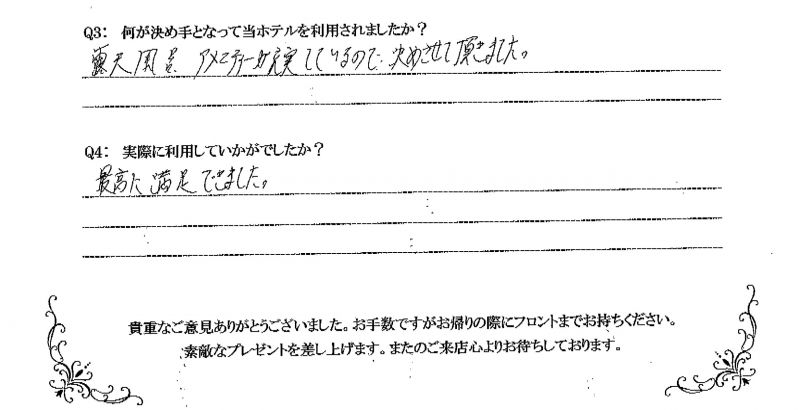 Q3: 何が決め手となって当ホテルを利用されましたか？
露天風呂、アメニティーが充実しているので、決めさせて頂きました。
Q4: 実際に利用していかがでしたか？
最高に満足できました。
貴重なご意見ありがとうございました。お手数ですがお帰りの際にフロントまでお持ちください。
素敵なプレゼントを差し上げます。またのご来店心よりお待ちしております。